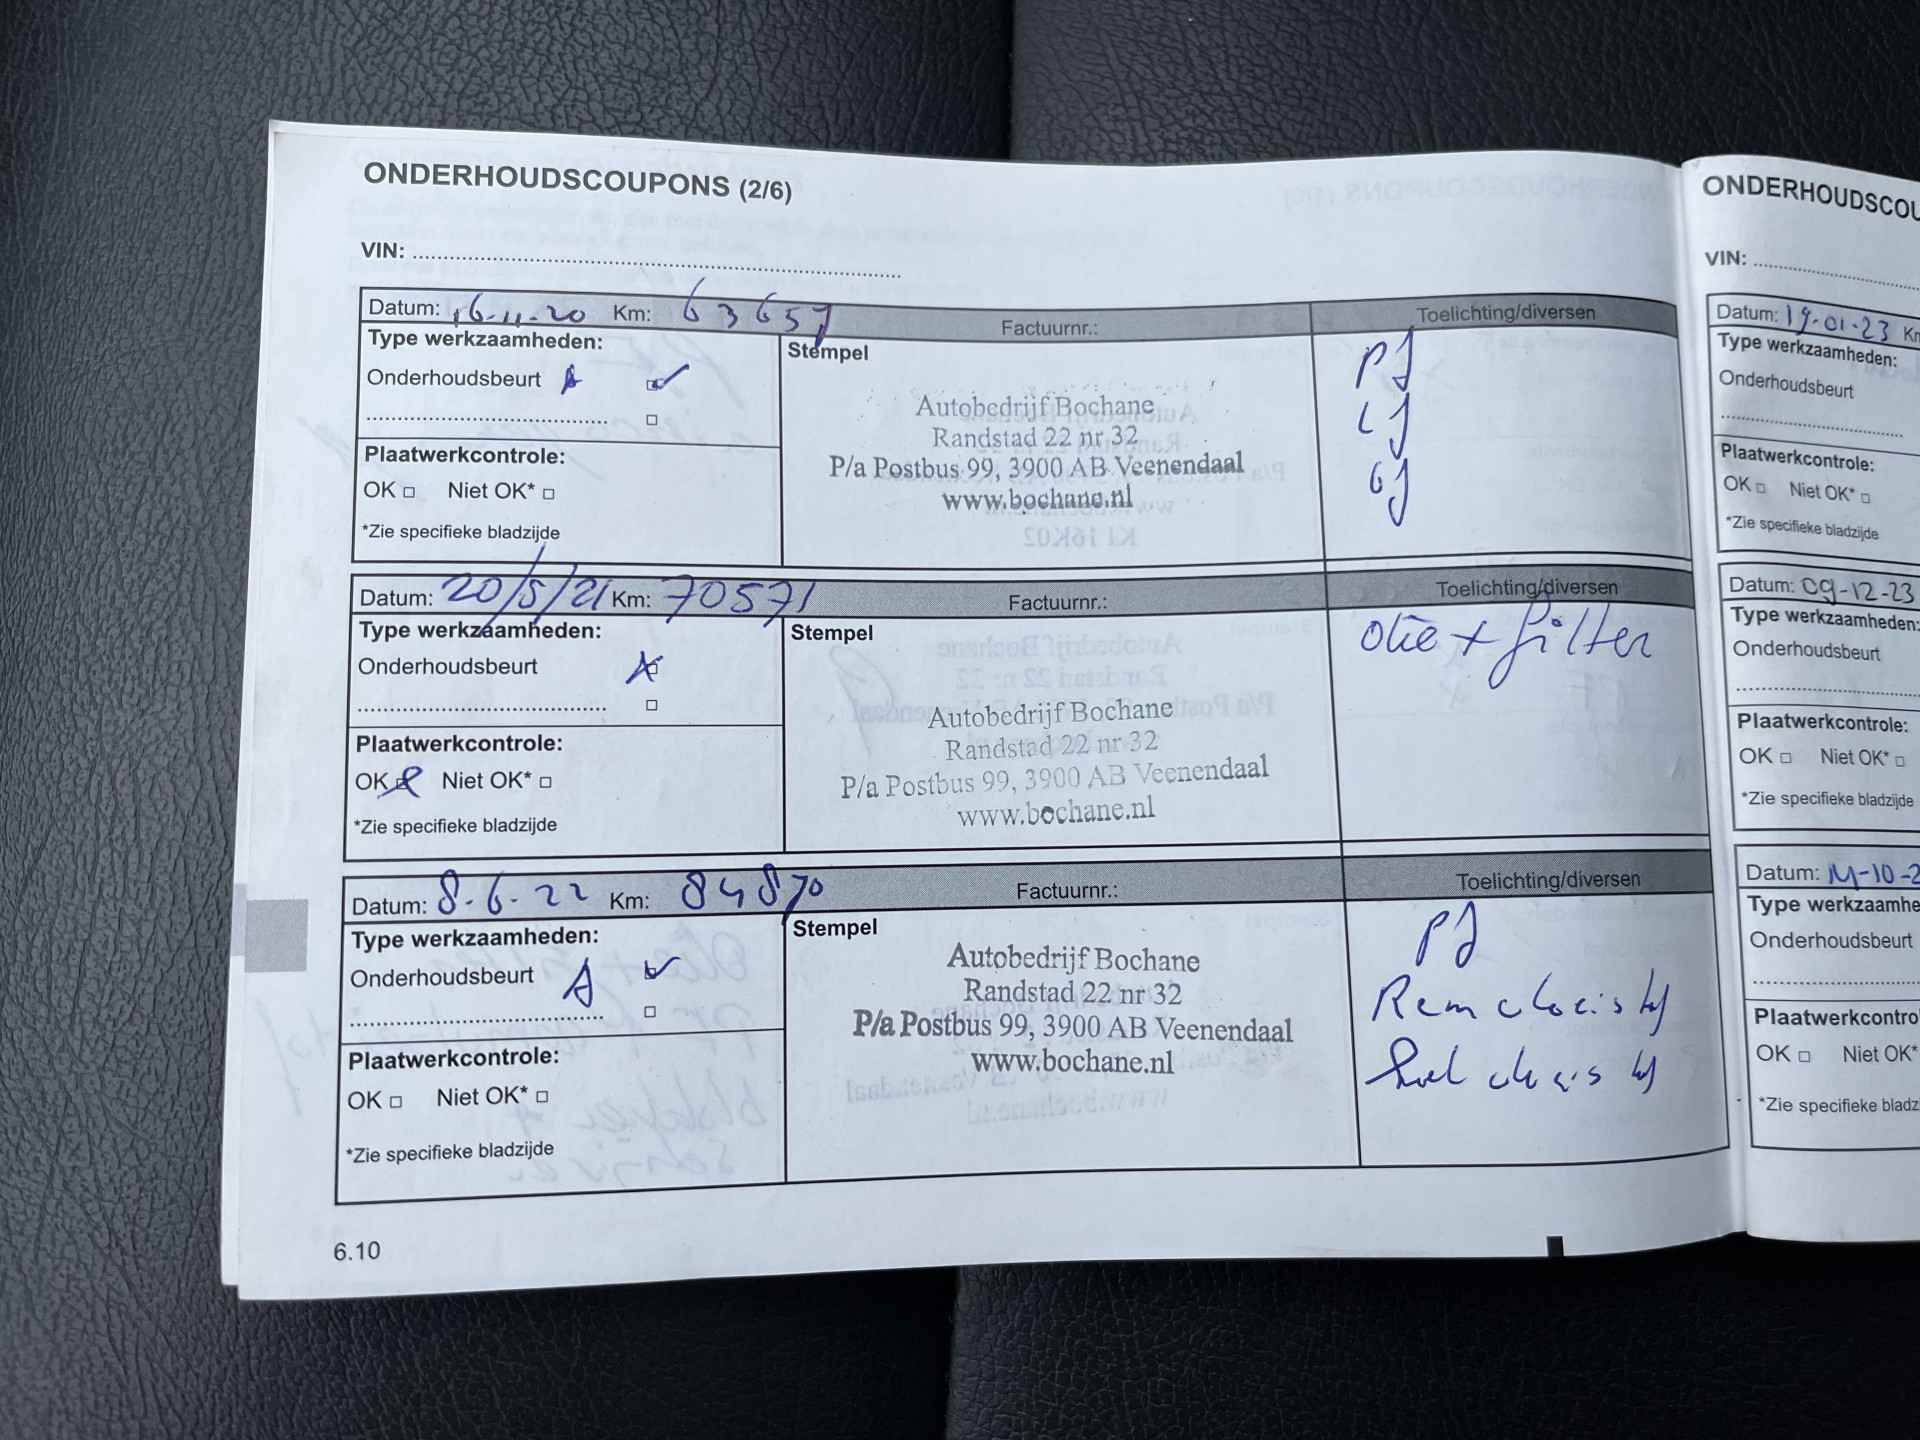 ONDERHOUDSCOUPONS (2/6)
VIN:
Datum: 16-11-20 Km: 63657 Factuurnr.: Toelichting/diversen
Type werkzaamheden:
Stempel
Onderhoudsbeurt A
Plaatwerkcontrole:
OK Niet OK*
*Zie specifieke bladzijde
Autobedrijf Bochane
Randstad 22 nr 32
P/a Postbus 99, 3900 AB Veenendaal
www.bochane.nl
PJ
LJ
GJ
Datum: 20/5/21 Km: 70571 Factuurnr.: Toelichting/diversen
Type werkzaamheden:
Stempel
Onderhoudsbeurt
Plaatwerkcontrole:
OK Niet OK*
*Zie specifieke bladzijde
Autobedrijf Bochane
Randstad 22 nr 32
P/a Postbus 99, 3900 AB Veenendaal
www.bochane.nl
olie + filter
Datum: 8-6-22 Km: 84870 Factuurnr.: Toelichting/diversen
Type werkzaamheden:
Stempel
Onderhoudsbeurt A
Plaatwerkcontrole:
OK Niet OK*
*Zie specifieke bladzijde
Autobedrijf Bochane
Randstad 22 nr 32
P/a Postbus 99, 3900 AB Veenendaal
www.bochane.nl
PJ
Remvloeistof
koelvloeistof
6.10
ONDERHOUDSCOU
VIN:
Datum: 19-01-23
Type werkzaamheden:
Onderhoudsbeurt
Plaatwerkcontrole:
OK Niet OK*
*Zie specifieke bladzijde
Datum: 09-12-23
Type werkzaamheden:
Onderhoudsbeurt
Plaatwerkcontrole:
OK Niet OK*
*Zie specifieke bladzijde
Datum:
Type werkzaamhe
Onderhoudsbeurt
Plaatwerkcontro
OK Niet OK*
*Zie specifieke bladz